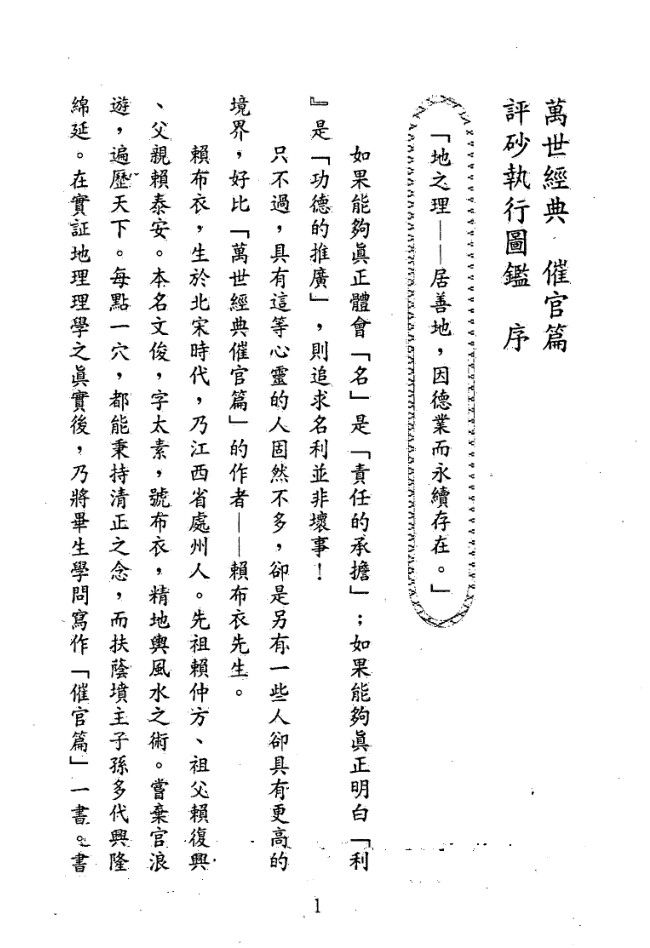 萬世經典 催官篇
評砂執行圖鑑 序
「地之理——居善地，因德業而永續存在。」
如果能夠眞正體會「名」是「責任的承擔」；如果能夠眞正明白「利
』是「功德的推廣」，則追求名利並非壞事！
只不過，具有這等心靈的人固然不多，卻是另有一些人卻具有更高的
境界，好比「萬世經典催官篇」的作者——賴布衣先生。
賴布衣，生於北宋時代，乃江西省處州人。先祖賴仲方、祖父賴復興
、父親賴泰安。本名文俊，字太素，號布衣，精地輿風水之術。嘗棄官浪
遊，遍歷天下。每點一穴，都能秉持清正之念，而扶蔭墳主子孫多代興隆
綿延。在實証地理理學之眞實後，乃將畢生學問寫作「催官篇」一書。書
1